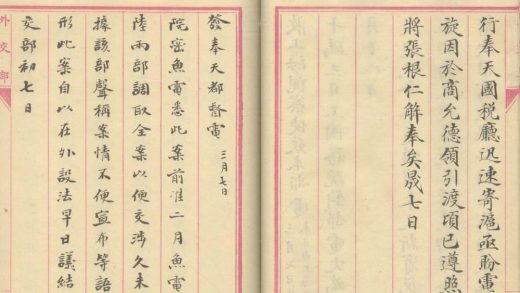 行奉天國稅廳迅速寄滬亟盼電
旋因於商允德領引渡頃已遵照
將張根仁解奉矣晟七日
發奉天都督電 三月七日
院密魚電悉此案前准二月魚電
陸兩部調取全案以便交涉久未
據該部聲稱案情不便宣布等語
形此案自以在外設法早日議結
交部初七日
外交部